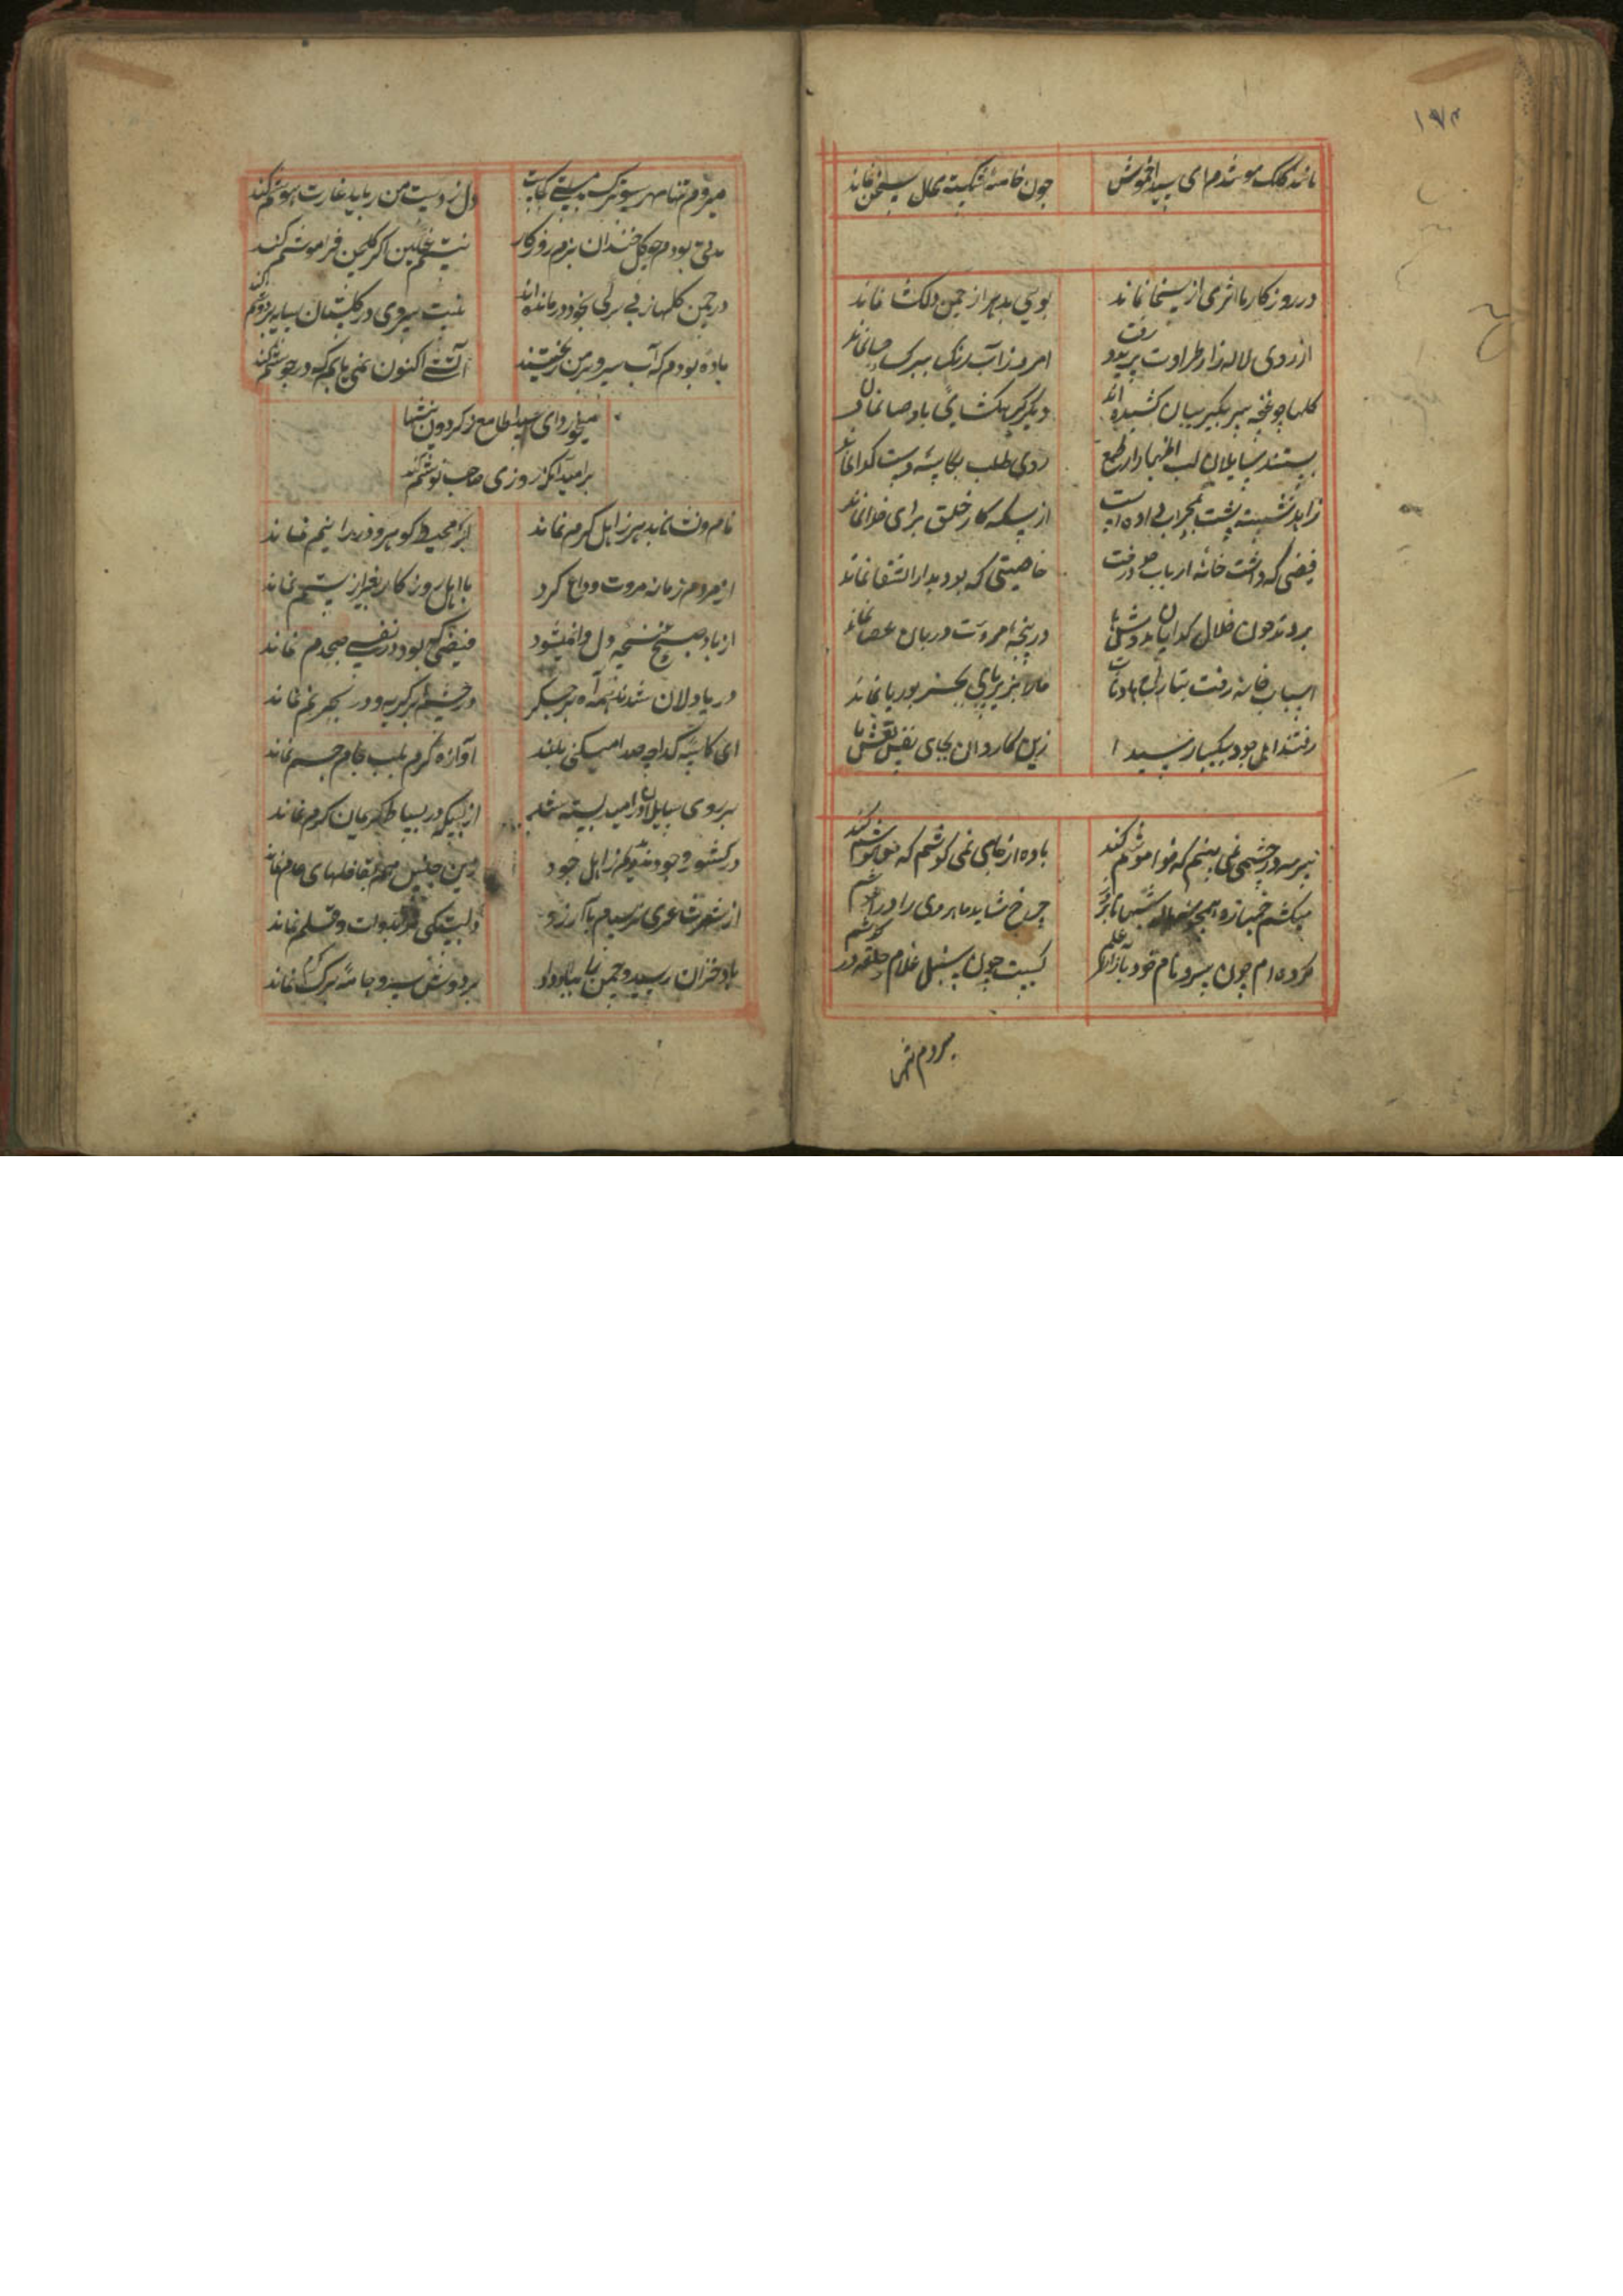 ۱۷۴
مانند کلک مو شدم ای سیدا خموش
چون خامهٔ شکسته مجال سخن نماند
در روزکار ما اثری از سخا نماند
بویی بدهر از چمن دلکشا نماند
از روی لاله زار طراوت پرید و رفت
امروز آب و رنک ببرک حیا نماند
کلها چو غنچه سر بکریبان کشیده اند
دیکر کره کشایی باد صبا نماند
بستند سایلان لب اظهار از طمع
روی طلب بکاسه دست کدا نماند
زاهد نشسته پشت بمحراب داده است
از بسکه کار خلق برای خدا نماند
فیضی که داشت خانه ارباب جود رفت
خاصیتی که بود بدار الشفا نماند
بردند چون خلال کدایان بدوشها
در پنجه مروت دربان عصا نماند
اسباب خانه رفت بتاراج حادثات
ما را بزیر پای بجز بوریا نماند
رفتند اهل جود بیکبار سیدا
زین کاروان بجای نفس نقش پا
نیم سرو چشمی نمی بینم که فراموشم کند
باده از جامی نمی نوشم که مدهوشم کند
میکشم خمیازه همچون هاله شبها تا سحر
چرخ شاید ماهروی را در آغوشم
کرده ام چون سرو نام خود بآزادی علم
کیست چون سنبل غلام حلقه در گوشم
میروم تنها
میروم تنها بهر سو ترک مستی کجاست
دل ز دست من رباید غارت هوشم کند
مدتی بودم چو کل خندان ببزم روزکار
نیستم غمکین اکر کلچین فراموشم کند
در چمن کلها ز بی برکی بخود در مانده اند
نیست سروی در کلستان سایه بر دوشم کند
باده بودم که آب سرد بر من ریختند
آتشی اکنون نمی یابم که در جوشم کند
میخورد ای سیدا طامع ز کردون نیشها
بر امید آنکه روزی صاحب نوشم کند
نام و نشان بدهر ز اهل کرم نماند
ابر محیط کوهر و دریای نم نماند
از مردم زمانه مروت وداع کرد
با اهل روزکار بغیر از ستم نماند
از باد صبح غنچه دل وا نمیشود
فیضی که بود در نفس صبحدم نماند
دریا دلان شدند همه آه بر جکر
در چشم ابر کریه و در بحر نم نماند
ای کاسه کدا چه صدا میکنی بلند
آوازه کرم بلب جام جم نماند
بر روی سایلان در امید بسته شد
از بسکه در بساط کریمان کرم نماند
در کشور وجود ز اهل جود
از شهرت شاعری نرسیدم بآرزو
دلبستکی مرا بدوات و قلم نماند
باد خزان رسید و چمن را بباد داد
بر دوش سرو جامهٔ برک کرم نماند